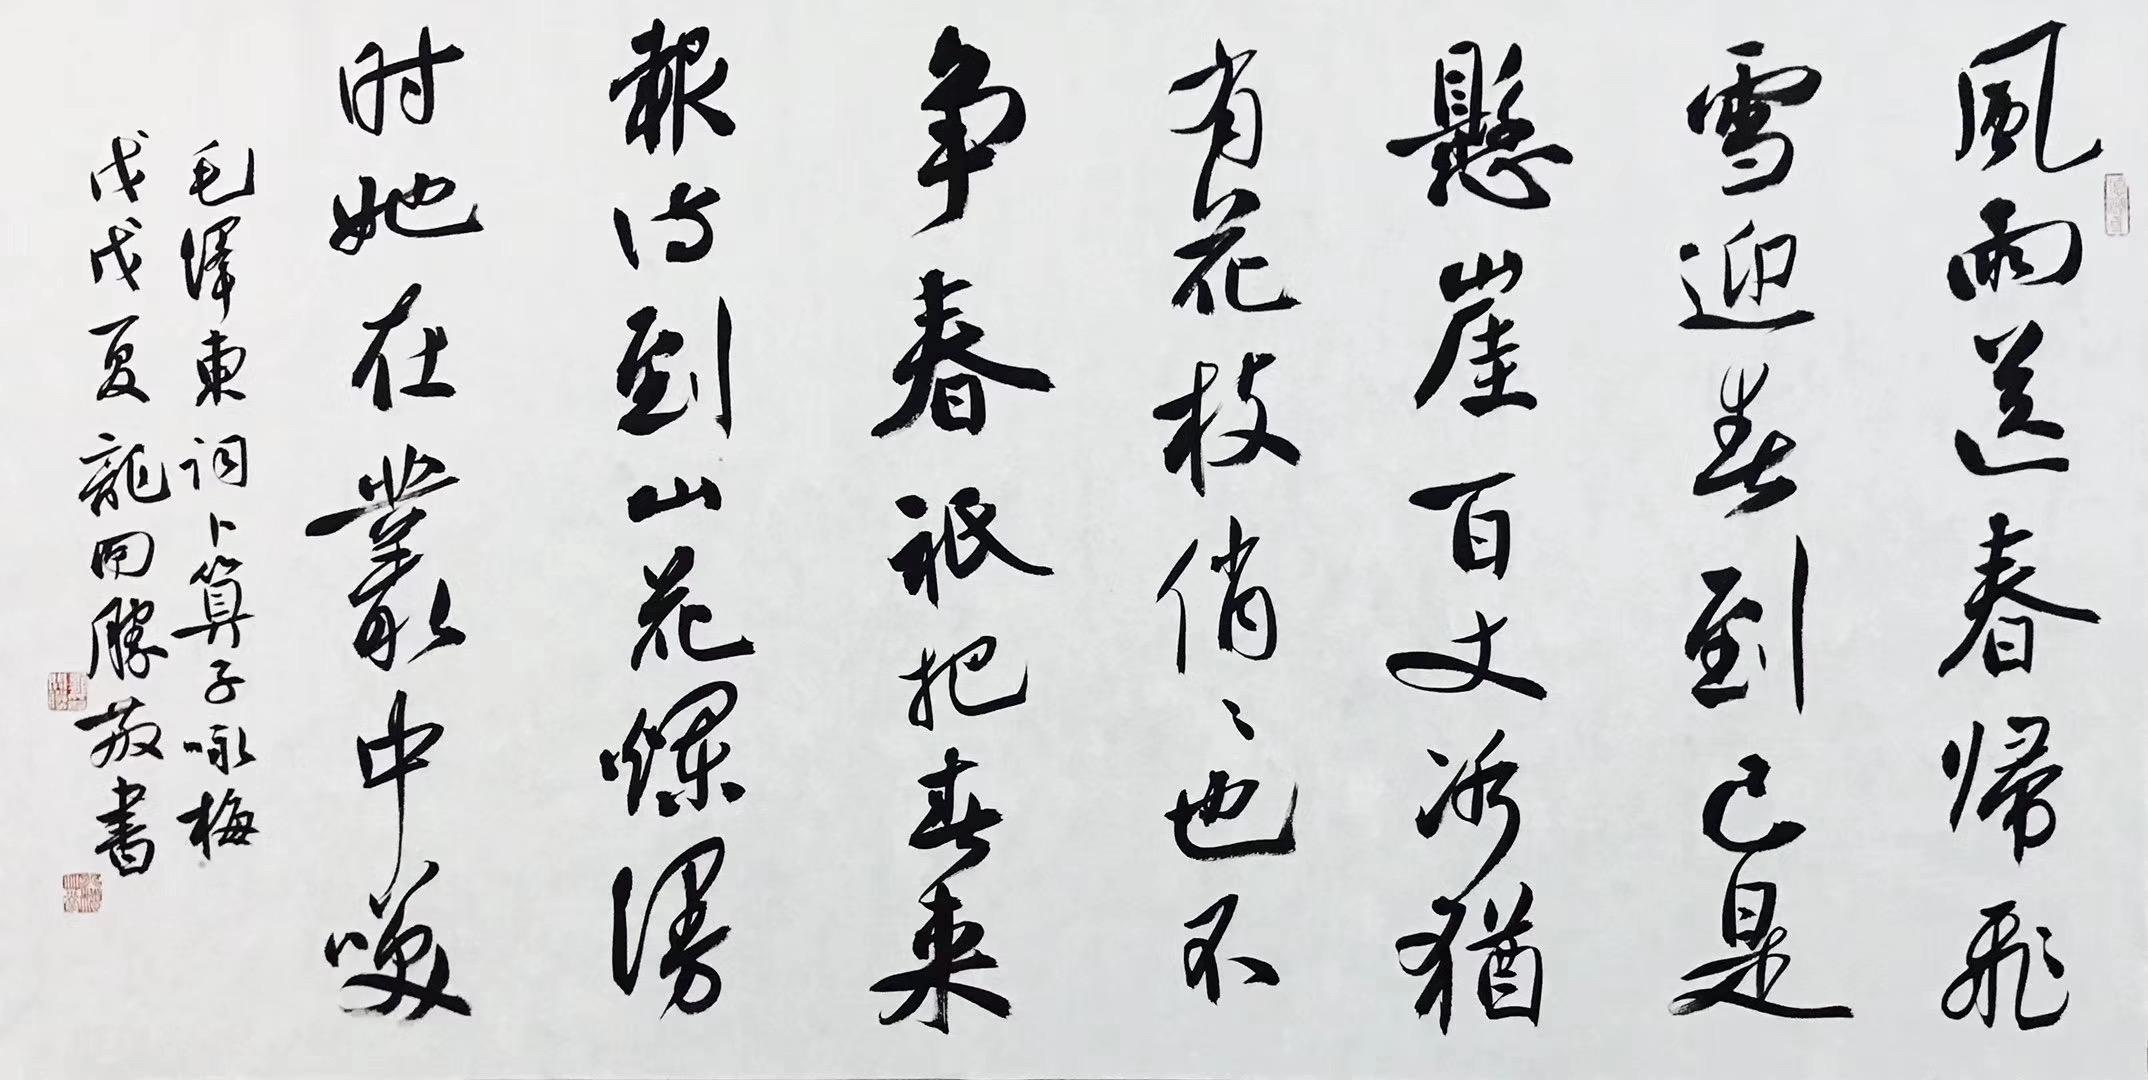 風雨送春帰飛
雪迎春到已是
懸崖百丈冰猶
有花枝俏々也不
争春祇把春来
報待到山花爛漫
时她在叢中咲
毛澤東詞卜算子咏梅
戊戌夏龍勝敬書